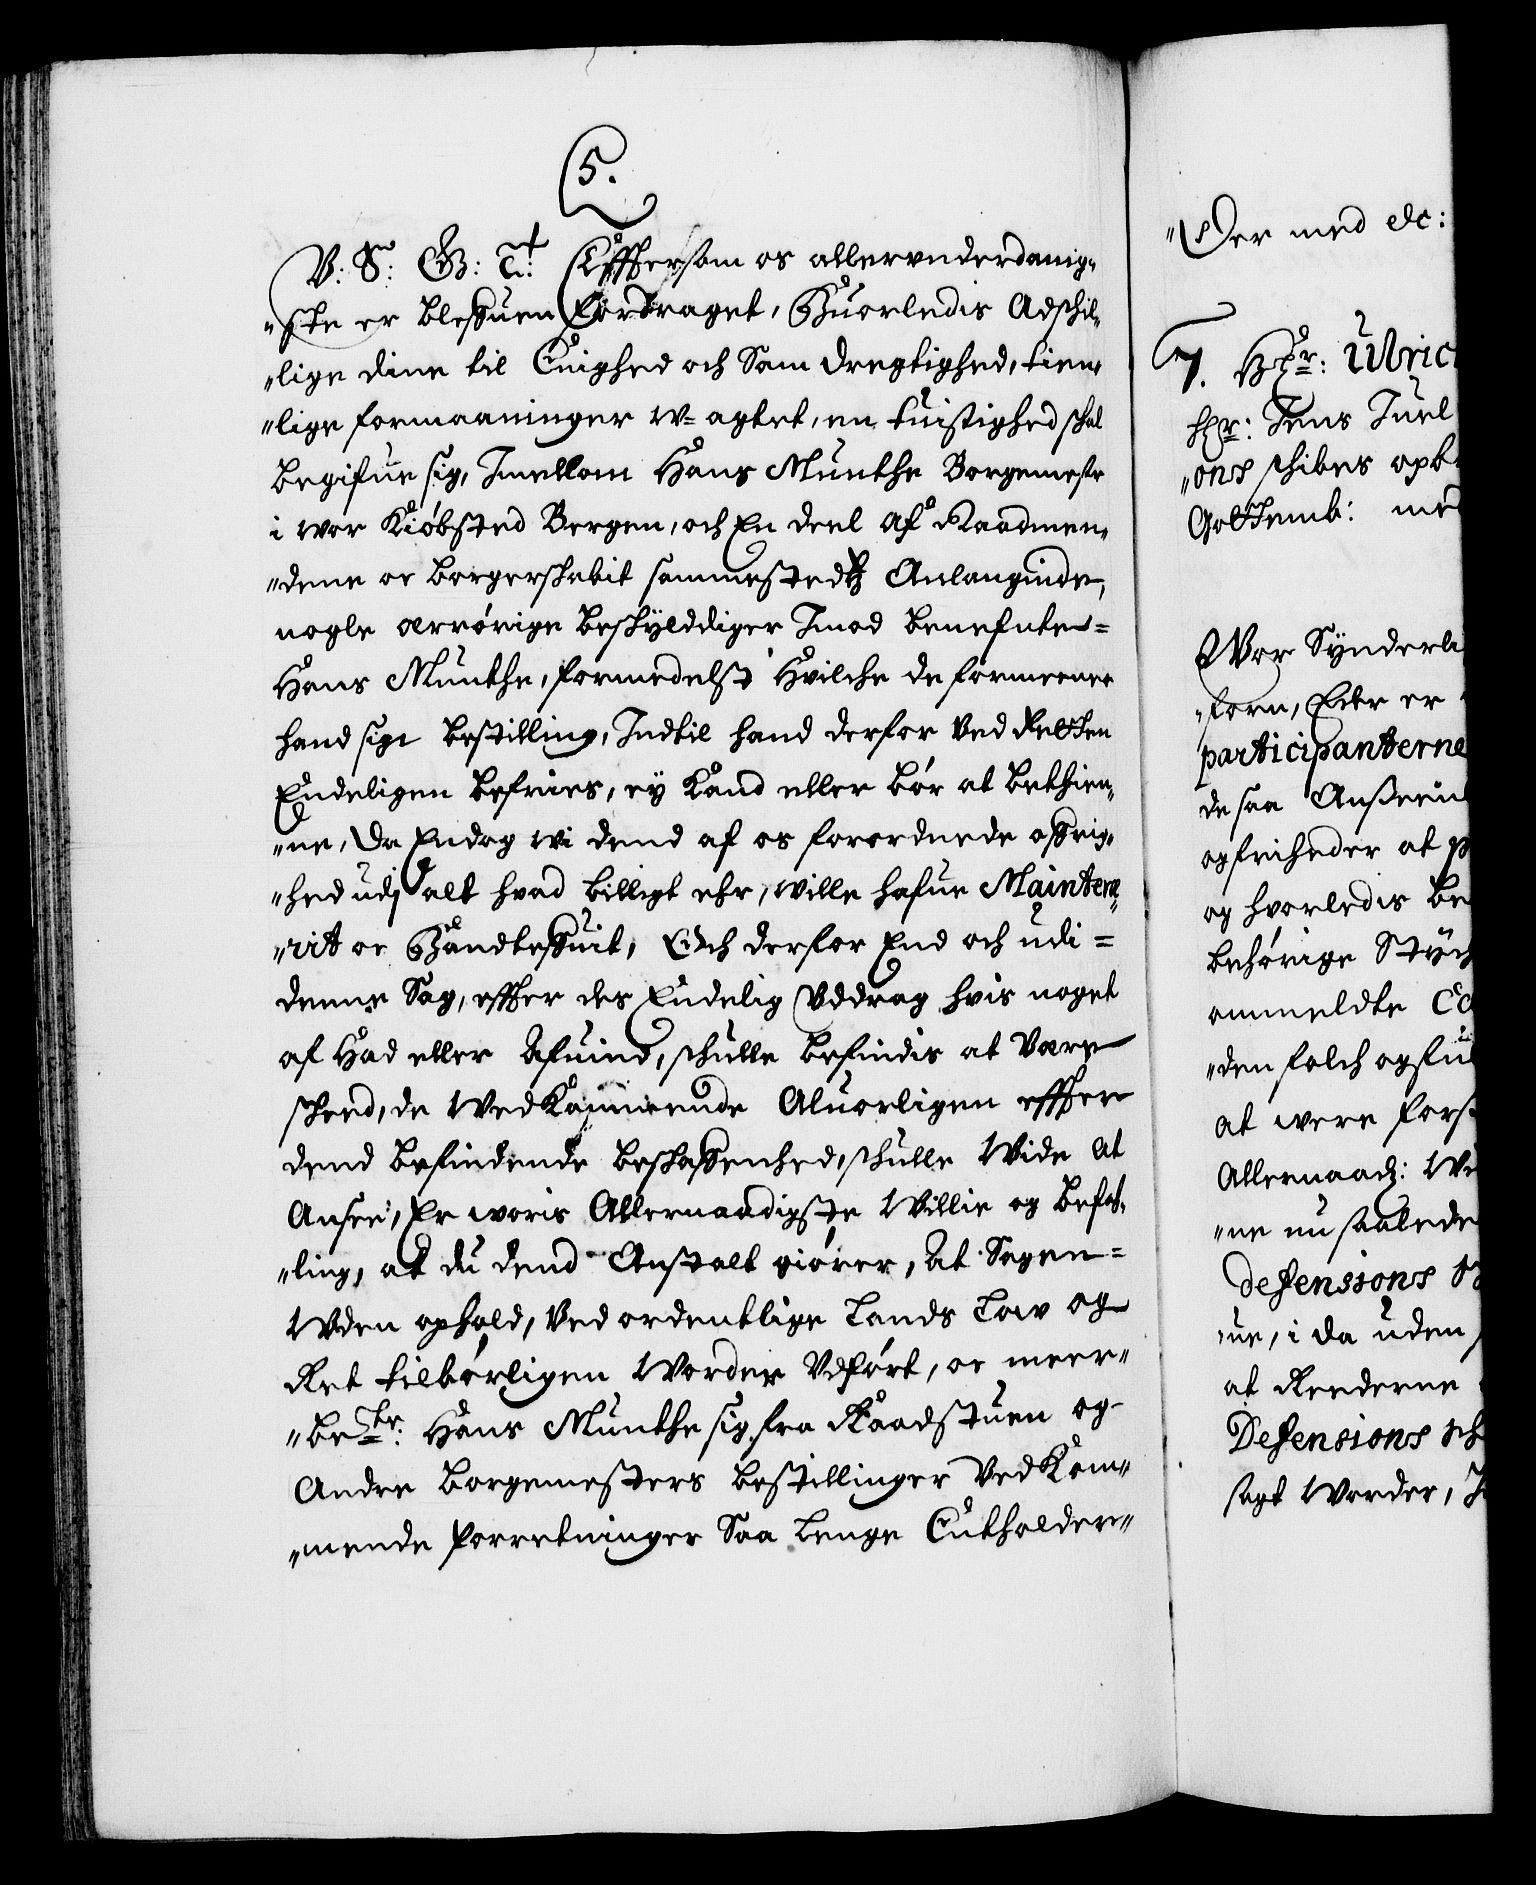 5.
V: S: G: T: Effter som os allerunderdanig„
„ste er bleffuen fordraget, Huorledis Adschil„
„lige dine til Enighed och Sam dregtighed, tien„
„lige formaaninger w= agtet, en tuistighed schal
begifue sig, Imellom Hans Munthe Borgemestr
i wor Kiöbsted Bergen, och En deel af Raadmen„
„dene oc borgerschabit sammestedtz Anlangende,
nogle ærrörige beschÿlddiger Imod benefnte=
Hans Munthe, formedelst Hvilche de formeener
hand sige bestilling, Indtil hand derfor ved Retten
Endeligen befries, eÿ kand eller bör at bethien„
„ne, Da Endog wi dend af os forordnede øffrig„
„hed udj alt hvad billigt ehr, wille hafue Mainten„
„rit oc Handteffuit, Och derfor End och udi=
denne Sag, effter des Endelig Uddrag hvis noget
af Had eller Afuind, schulle befindis at være
scheed, de wedkommende Aluorligen effter
dend befindende beschaffenhed, schulle wide at
Ansee, Er woris Allernaadigste Willie og befal„
„ling, at du dend Anstalt giörer, at Sagen=
Uden ophold, ved ordentlige Lands Low og
Ret tilbörligen worder Udfört, oc meer„
„betr: Hans Munthe sig fra Raadstuen og
Andre borgemesters bestillinger vedkom„
„mende forretninger Saa lenge Entholder„
„Der med etc:
7. Hr: Ulric
Hr: Jens Juel
„ons schibes opb
Gottenb: med
Wor Sÿnderli
„forn, Eder er
participanterne
de saa Anseen
og friheder at p
og hvorledis be
behörige Stÿch
ommeldte Co
„den folch og fu
at were forst
Allernaadg: We
„ne nu saalede
defensions
„ue, i da uden
at Reederne
Defensions sch
sagt worder, J